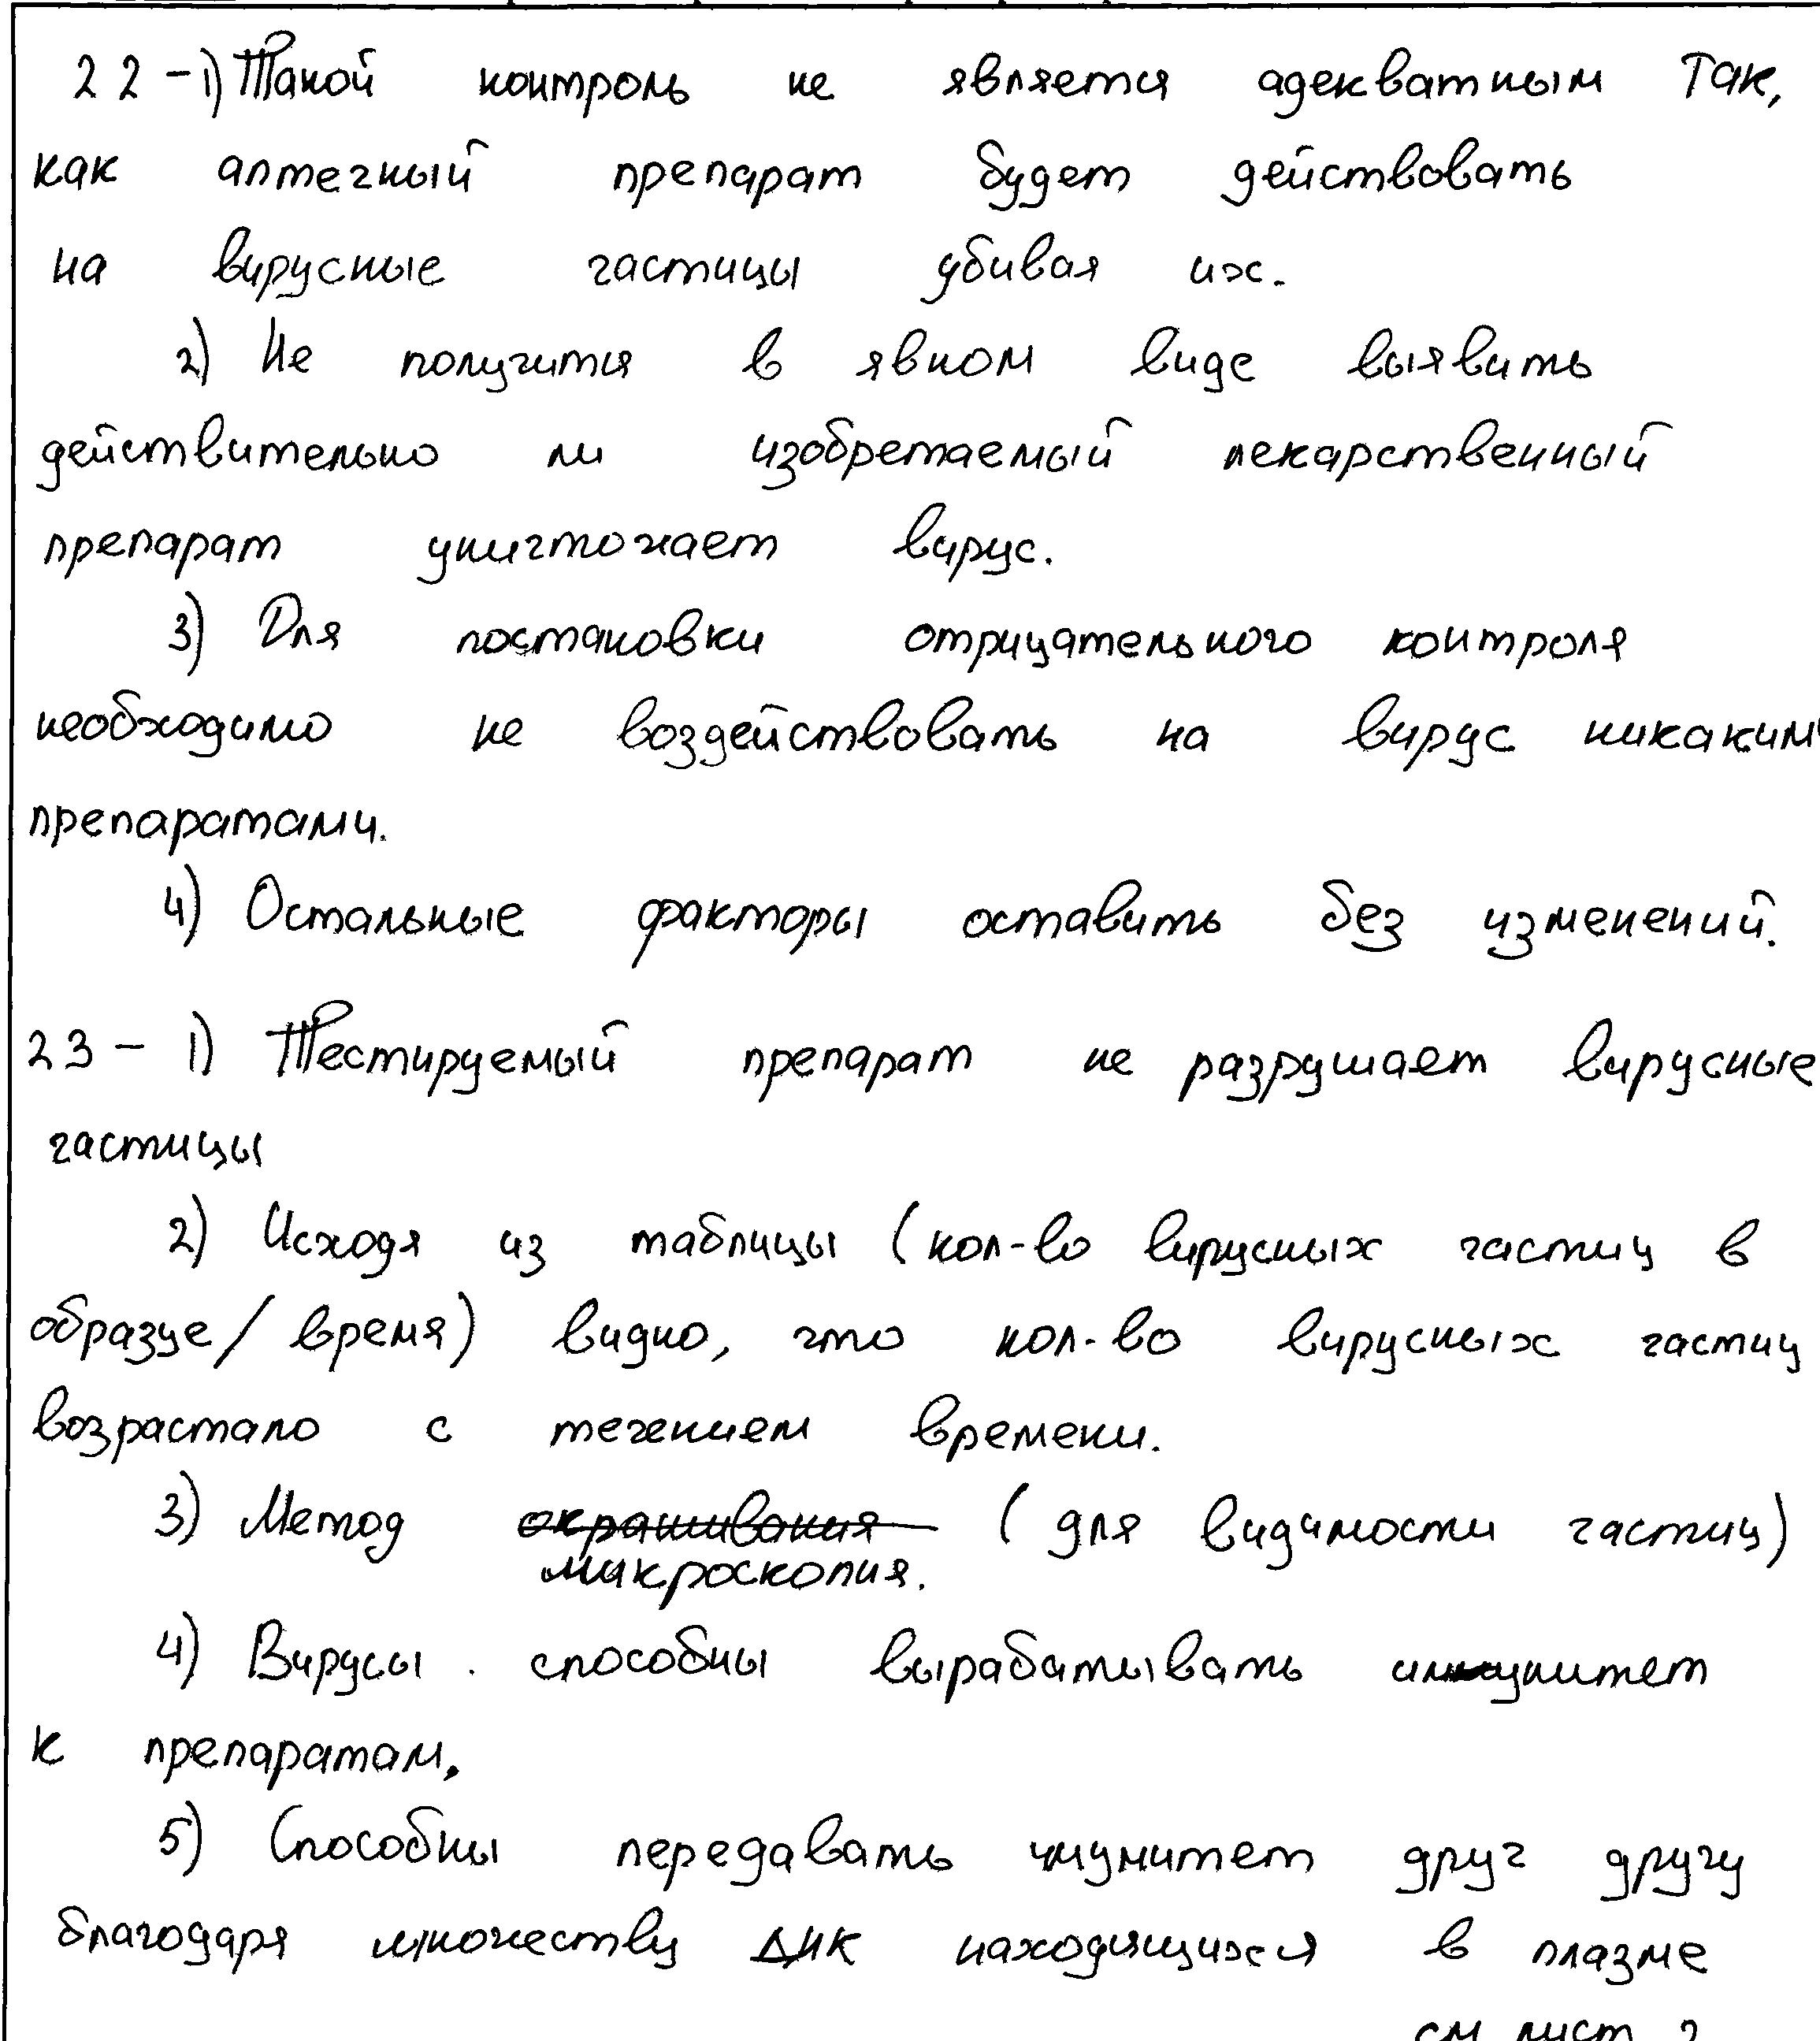 22 - 1) Такой контроль не является адекватным Так,
как аптечный препарат будет действовать
на вирусные частицы убивая их.
2) Не получится в явном виде выявить
действительно ли изобретаемый лекарственный
препарат уничтожает вирус.
3) Для постановки отрицательного контроля
необходимо не воздействовать на вирус никакими
препаратами.
4) Остальные факторы оставить без изменений.
23 - 1) Тестируемый препарат не разрушает вирусные
частицы
2) Исходя из таблицы (кол-во вирусных частиц в
образце / время) видно, что кол-во вирусных частиц
возрастало с течением времени.
3) Метод окрашивания (для видимости частиц)
микроскопия.
4) Вирусы способны вырабатывать иммунитет
к препаратам.
5) Способны передавать имунитет друг другу
благодаря множеству ДНК находящихся в плазме
см лист 2